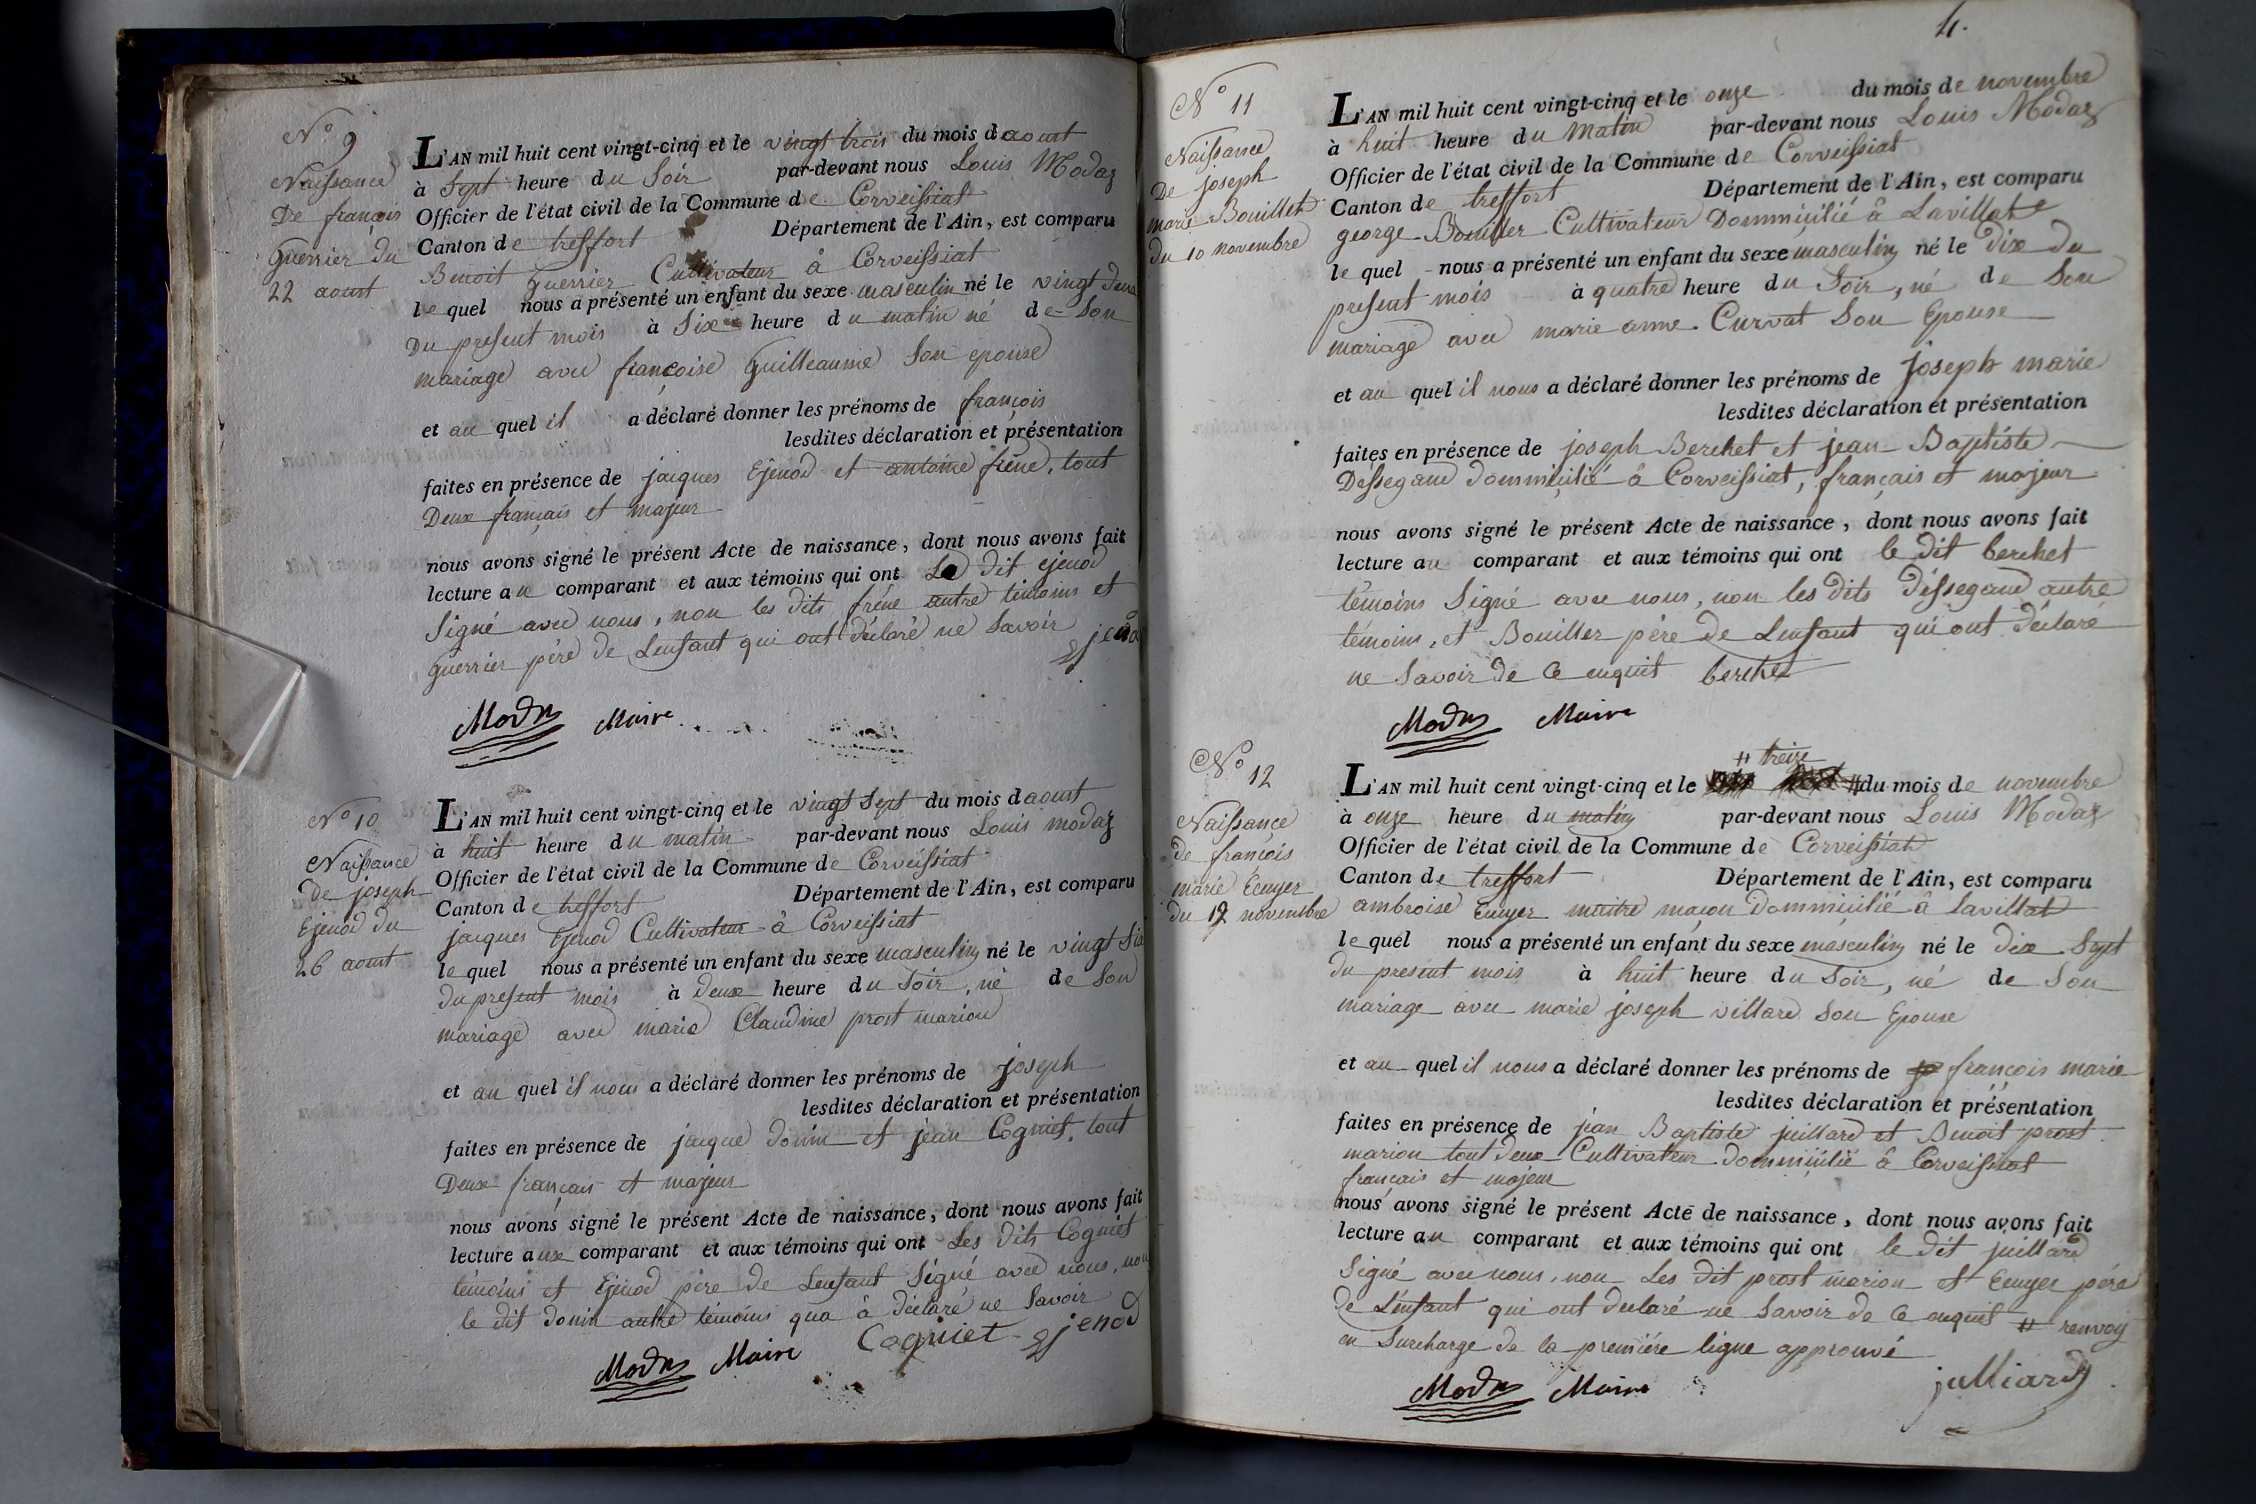 N° 9
Naissance
De françois
Guerrier du
22 aoust
L'AN mil huit cent vingt-cinq et le vingt trois du mois d aoust
à Sept heure du Soir par-devant nous Louis Modaz
Officier de l'état civil de la Commune de Corveissiat
Canton de treffort Département de l'Ain, est comparu
Benoit guerrier Cultivateur à Corveissiat
le quel nous a présenté un enfant du sexe masculin né le vingt deux
Du present mois à Six heure du matin né de Son
mariage avec françoise Guilleaume Son epouse
et au quel il a déclaré donner les prénoms de françois
lesdites déclaration et présentation
faites en présence de jacques Ejenod et antoine frêne, tout
Deux français et majeur
nous avons signé le présent Acte de naissance, dont nous avons fait
lecture au comparant et aux témoins qui ont Le dit ejenod
Signé avec nous, non les dits frêne autre témoins et
guerrier père de Lenfant qui ont déclaré ne Savoir
Ejenod
Modaz Maire
N° 10
Naissance
de joseph
Ejenod du
26 aoust
L'AN mil huit cent vingt-cinq et le vingt Sept du mois d aoust
à huit heure du matin par-devant nous Louis modaz
Officier de l'état civil de la Commune de Corveissiat
Canton de treffort Département de l'Ain, est comparu
jacques Ejenod Cultivateur à Corveissiat
le quel nous a présenté un enfant du sexe masculin né le vingt Six
du present mois à deux heure du Soir, né de Son
mariage avec marie Claudine prost marion
et au quel il nous a déclaré donner les prénoms de joseph
lesdites déclaration et présentation
faites en présence de jacque donin et jean Cogniet, tout
Deux français et majeur
nous avons signé le présent Acte de naissance, dont nous avons fait
lecture aux comparant et aux témoins qui ont Les dits Cogniet
témoins et Ejenod père de Lenfant Signé avec nous, non
le dit donin autre témoins qua à déclaré ne Savoir
Modaz Maire Cogniet Ejenod
4.
N° 11
Naissance
De joseph
marie Bouillet
du 10 novembre
L'AN mil huit cent vingt-cinq et le onze du mois de novembre
à huit heure du Matin par-devant nous Louis Modaz
Officier de l'état civil de la Commune de Corveissiat
Canton de treffort Département de l'Ain, est comparu
george Bouiller Cultivateur Dommicilié à Lavillat
le quel nous a présenté un enfant du sexe masculin né le dix du
present mois à quatre heure du Soir, né de Son
mariage avec marie anne Curvat Son Epouse
et au quel il nous a déclaré donner les prénoms de joseph marie
lesdites déclaration et présentation
faites en présence de joseph Berchet et jean Baptiste
Déssegaud dommicilié à Corveissiat, français et majeur
nous avons signé le présent Acte de naissance, dont nous avons fait
lecture au comparant et aux témoins qui ont le dit berchet
témoins Signé avec nous, non les dits Déssegaud autre
témoins, et Bouiller père de Lenfant qui ont déclaré
ne Savoir de Ce enquit berchet
Modaz Maire
N° 12
Naissance
de françois
marie Ecuyer
du 12 novembre
# treize
L'AN mil huit cent vingt-cinq et le # du mois de novembre
à onze heure du matin par-devant nous Louis Modaz
Officier de l'état civil de la Commune de Corveissiat
Canton de treffort Département de l'Ain, est comparu
ambroise Ecuyer maitre maçon dommicilié à Lavillat
le quel nous a présenté un enfant du sexe masculin né le dix Sept
du present mois à huit heure du Soir, né de Son
mariage avec marie joseph villard Son Epouse
et au quel il nous a déclaré donner les prénoms de françois marie
lesdites déclaration et présentation
faites en présence de jean Baptiste juillard et Benoit prost
marion tout deux Cultivateur dommicilié à Corveissiat
français et majeur
nous avons signé le présent Acte de naissance, dont nous avons fait
lecture au comparant et aux témoins qui ont le dit juillard
Signé avec nous, non Les dit prost marion et Ecuyer père
de Lenfant qui ont declaré ne Savoir de Ce enquit # renvoy
en Surcharge de la première ligne approuvé
Modaz Maire julliard